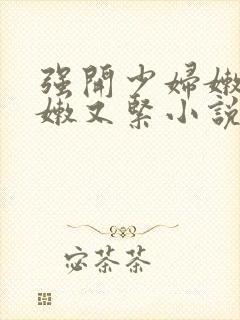 强開少婦嫩
嫩又緊小說
宓茶茶